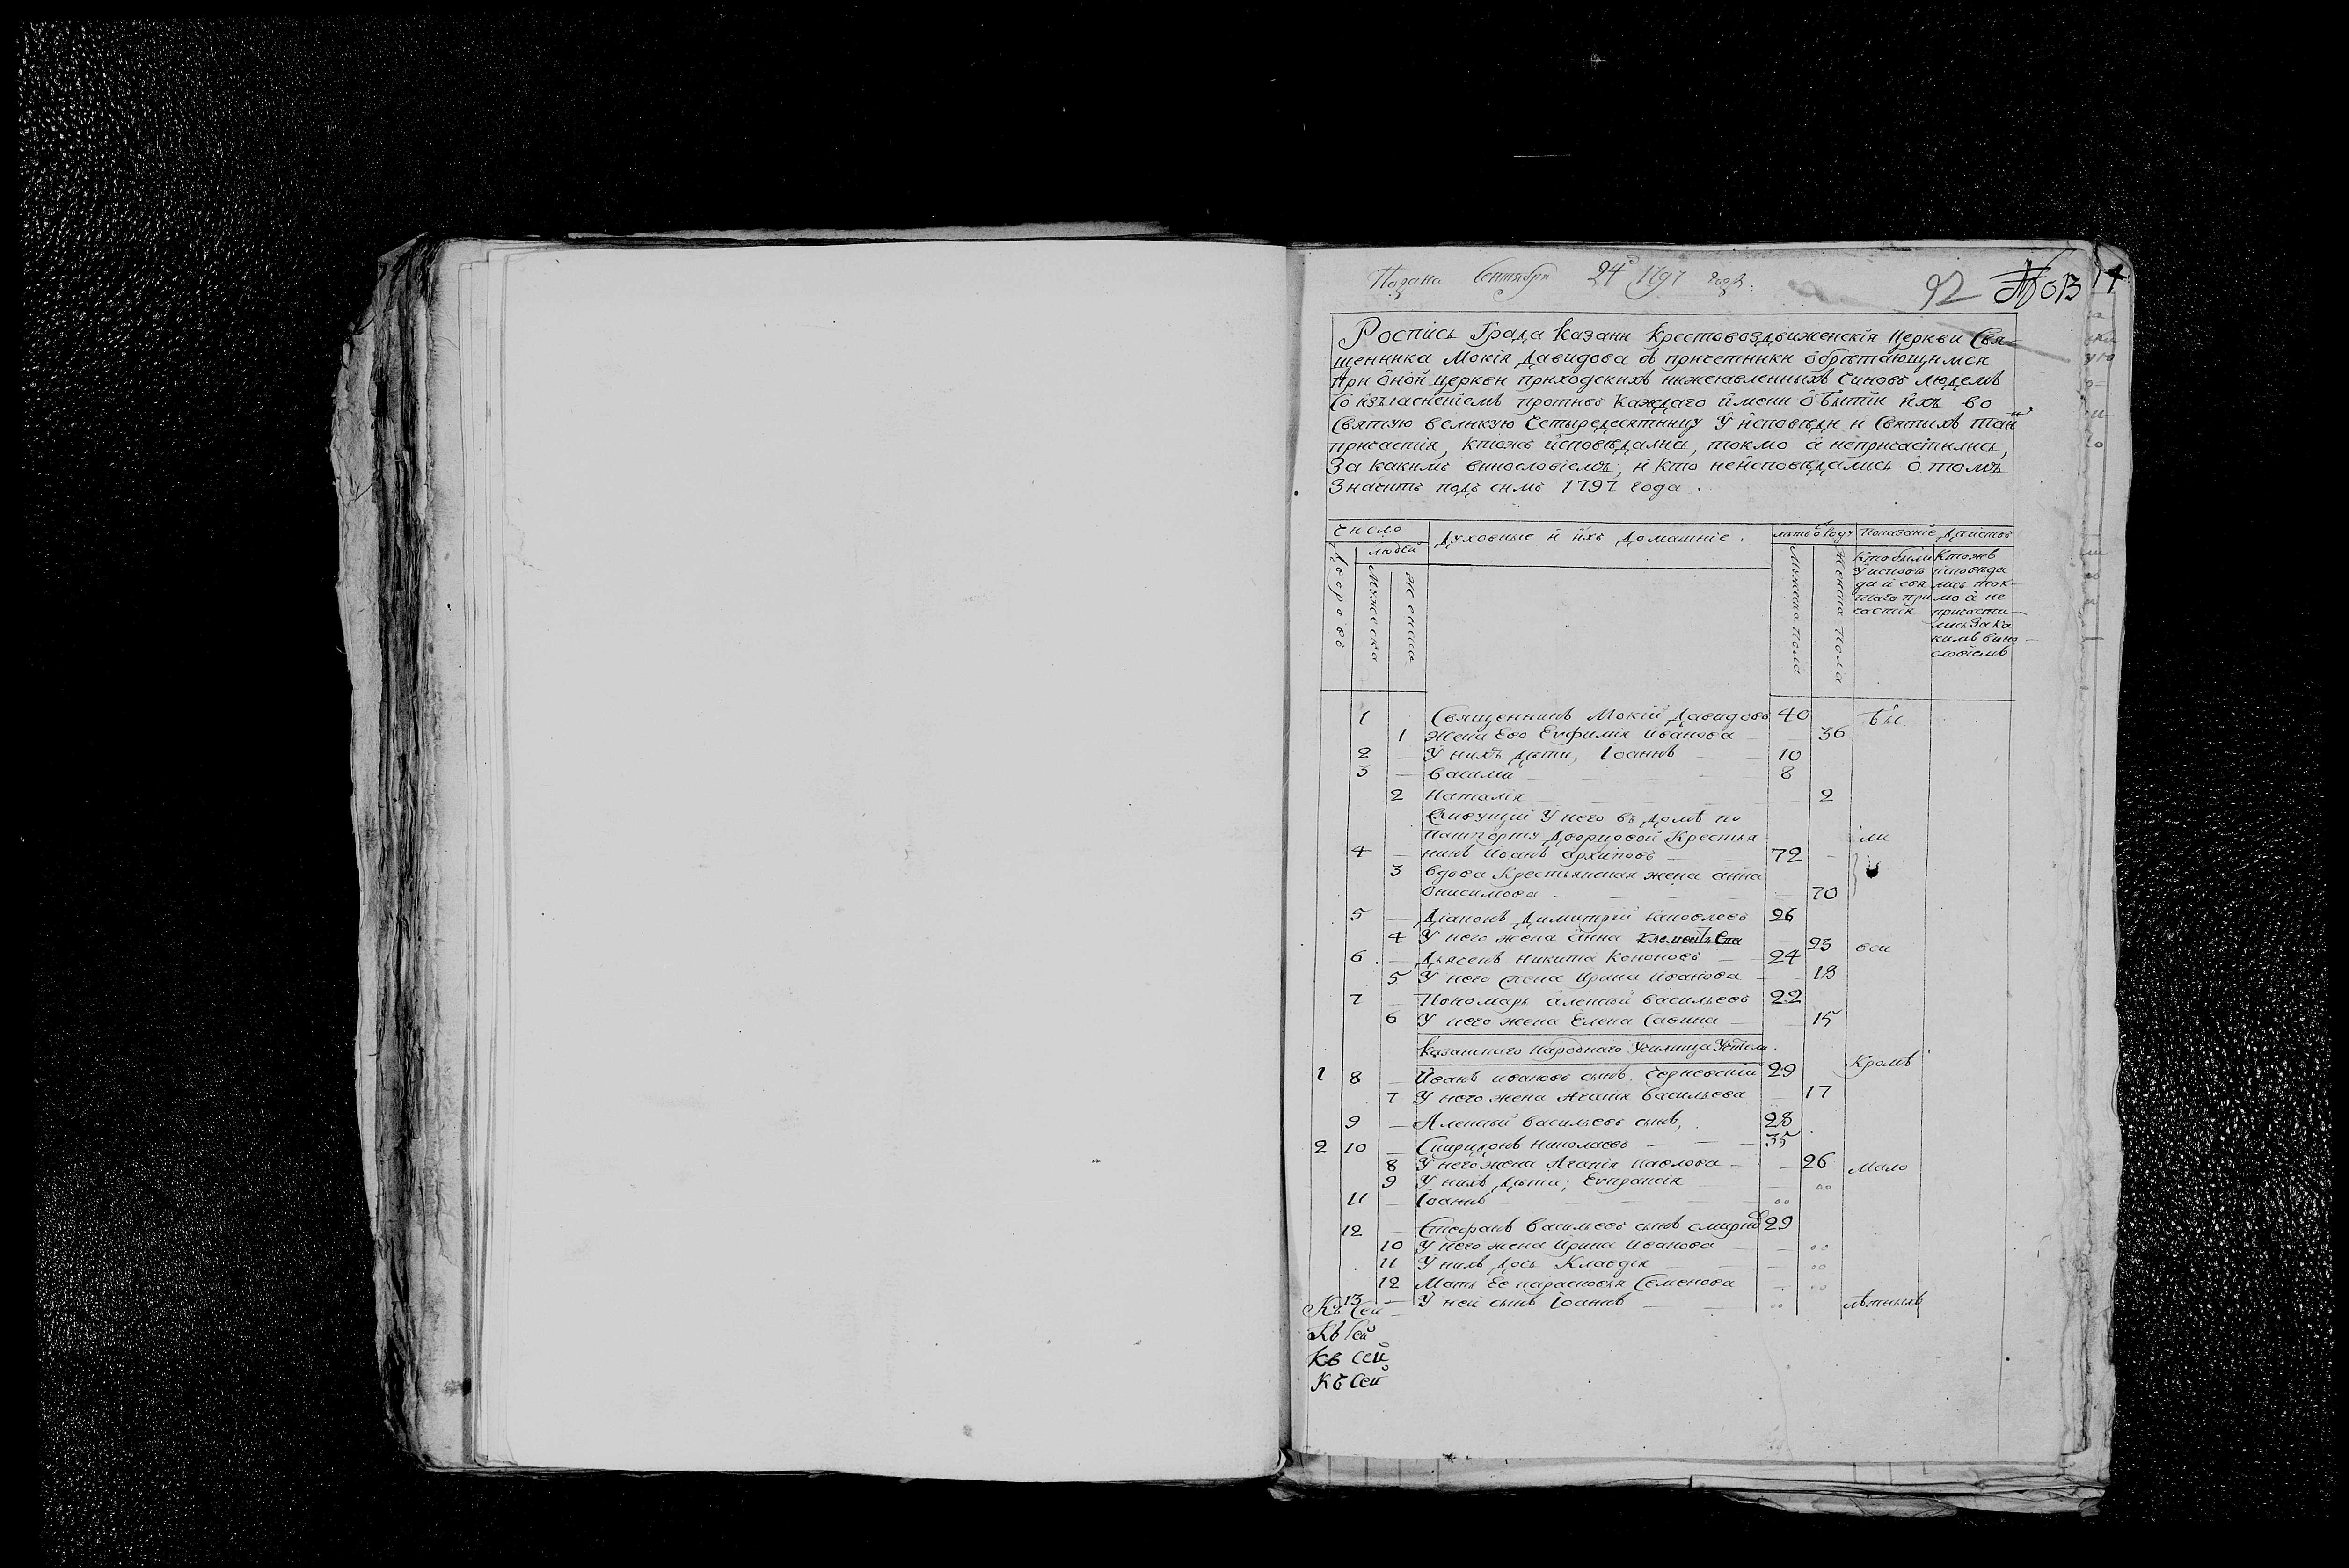 Подана Сентября 24г 1797 года.
92
14
Роспись Града Казани Крестовоздвиженскія Церкви Свя-
щенника Мокія Давидова ѣ причетники обрѣтающимся
При оной церкви приходскихъ нижеявленныхъ чиновъ людемъ
Со изъясненіемъ противъ каждаго имени о бытіи ихъ во
Святую великую Четыредесятницу У исповѣди и Святыхъ таи
причастія, ктожъ исповѣдались, токмо а непричастились,
За какимъ винословіемъ, и кто неисповѣдались о томъ
Значитъ подъ симъ 1797 года.
Число Духовные и ихъ домашніе. лѣтъ о роду Показаніе дѣйствъ
людей
Дворовъ Мужеска Женска Мужеска пола Женска пола
Кто были У исповѣди и святаго причастія
Ктожъ исповѣдались токмо а не причастились За какимъ винословіемъ
1 Священникъ Мокій Давидовъ 40
1 Жена Его Евфимія Иванова 36
2 У нихъ дѣти, Іоаннъ 10
3 Василій 8
2 Наталія 2
Живущий У него въ домѣ по
пашпорту Дворцовой Крестья
4 нинъ Иванъ Архиповъ 72
3 Вдова Крестьянская жена анна
Онисимова 70
5 Діаконъ Димитрий 26
4 У него жена анна 23 вси
6 Дьячекъ Никита Кононовъ 24
5 У него жена Ирина Иванова 18
7 Пономарь алексий Васильевъ 22
6 У него жена Елена Савина 15
Казанскаго Народнаго Училища Учители.
Кромѣ
1 8 Иванъ ивановъ сынъ 29
7 У него жена Агапія Васильева 17
9 Алексий Васильевъ сынъ, 28
2 10 Спиридонъ Николаевъ 35
8 У него жена Агапія Павлова 26 мало
9 У нихъ дѣти; Евпраксія
11 Іоаннъ
12 Стефанъ Васильевъ сынъ смирнов 29
10 У него жена Ирина Иванова
11 У нихъ дочь Клавдія
12 Мать Ее парасковья Семенова
13 У ней сынъ Іоаннъ лѣтныхъ
Къ Сей
Къ Сей
Къ Сей
Къ Сей